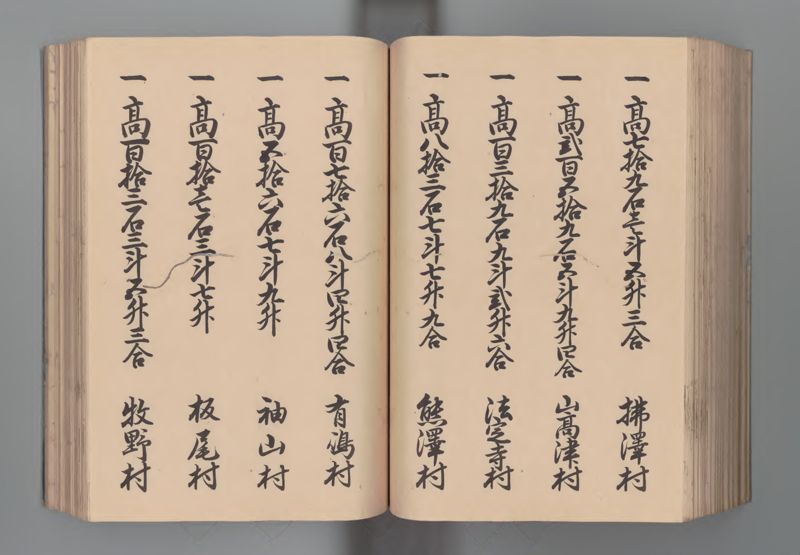 一 高七拾九石壱斗五升三合 拂澤村
一 高弐百五拾九石六斗九升四合 山髙津村
一 高百三拾九石九斗弐升六合 法定寺村
一 高八拾三石七斗七升九合 熊澤村
一 高百七拾六石八斗四升四合 有嶋村
一 高五拾六石七斗九升 袖山村
一 高百拾壱石三斗七升 板尾村
一 高百拾三石三斗五升三合 牧野村